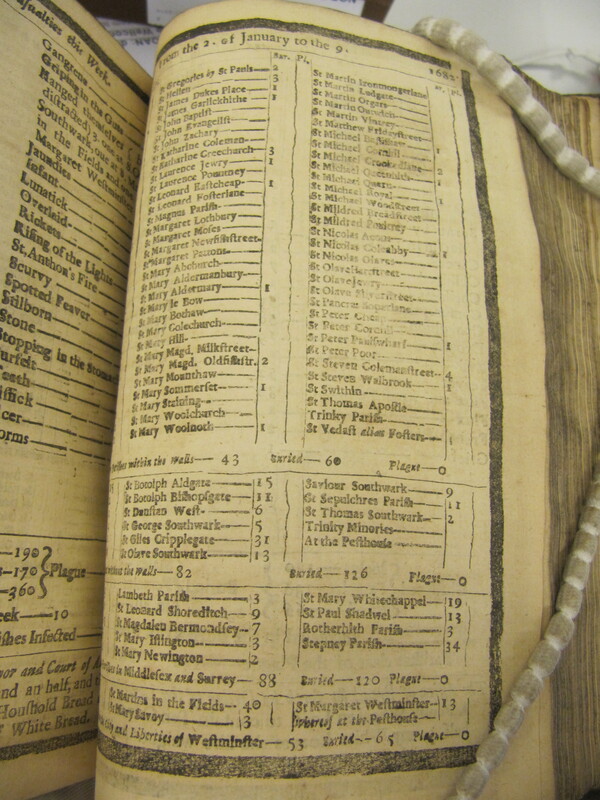 Casualties this Week.
Gangrene
Griping in the Guts
Hanged themselves
distracted 3. one at
Southwark, one at
in the Fields and
Margaret Westminster
Jaundies
Infant
Lunatick
Overlaid
Rickets
Rising of the Lights
St. Anthon's Fire
Scurvy
Spotted Feaver
Stilborn
Stone
Stopping in the Stomach
Surfeit
Teeth
190
170 Plague
360
10
ishes Infected
or and Court of
and an half, and
Houshold Bread
White Bread.
From the 2. of January to the 9. 1682
Bur. Pl.
St Gregories by St Pauls 2
St Hellen 3
St James Dukes Place 1
St James Garlickhithe 1
St John Baptist
St John Evangelist
St John Zachary
St Katharine Coleman
St Katharine Creechurch 3
St Laurence Jewry 1
St Laurence Pountney
St Leonard Eastcheap 1
St Leonard Fosterlane
St Magnus Parish
St Margaret Lothbury
St Margaret Moses
St Margaret Newfishstreet
St Margaret Pattons
St Mary Abchurch
St Mary Aldermanbury
St Mary Aldermary 1
St Mary le Bow
St Mary Bothaw
St Mary Colechurch
St Mary Hill
St Mary Magd. Milkstreet
St Mary Magd. Oldfishstr. 2
St Mary Mounthaw
St Mary Sommerset 1
St Mary Staining
St Mary Woolchurch
St Mary Woolnoth 1
St Martin Ironmongerlane
St Martin Ludgate
St Martin Orgars
St Martin Outwich
St Martin Vintrey
St Matthew Fridaystreet
St Michael Bassishaw
St Michael Cornhil 1
St Michael Crookedlane
St Michael Queenhith 2
St Michael Quern 1
St Michael Royal
St Michael Woodstreet 1
St Mildred Breadstreet
St Mildred Poultrey
St Nicolas Acons
St Nicolas Coleabby 1
St Nicolas Olaves
St Olave Hartstreet
St Olave Jewry
St Olave Silverstreet
St Pancras Soperlane
St Peter Cheap
St Peter Cornhil
St Peter Paulswharf 1
St Peter Poor
St Steven Colemanstreet 4
St Steven Walbrook 1
St Swithin 1
St Thomas Apostle
Trinity Parish
St Vedast alias Fosters
Parishes within the Walls 43 Buried 60 Plague 0
St Botolph Aldgate 15
St Botolph Bishopsgate 11
St Dunstan West 6
St George Southwark 5
St Giles Cripplegate 31
St Olave Southwark 13
Saviour Southwark 9
St Sepulchres Parish 11
St Thomas Southwark 2
Trinity Minories
At the Pesthouse
without the Walls 82 Buried 126 Plague 0
Lambeth Parish 3
St Leonard Shoreditch 9
St Magdalen Bermondsey 7
St Mary Islington 3
St Mary Newington 2
St Mary Whitechappel 19
St Paul Shadwel 13
Rotherhith Parish 3
Stepney Parish 34
Parishes in Middlesex and Surrey 88 Buried 120 Plague 0
St Martins in the Fields 40
St Mary Savoy 3
St Margaret Westminster 13
Whereof at the Pesthouse
City and Liberties of Westminster 53 Buried 65 Plague 0